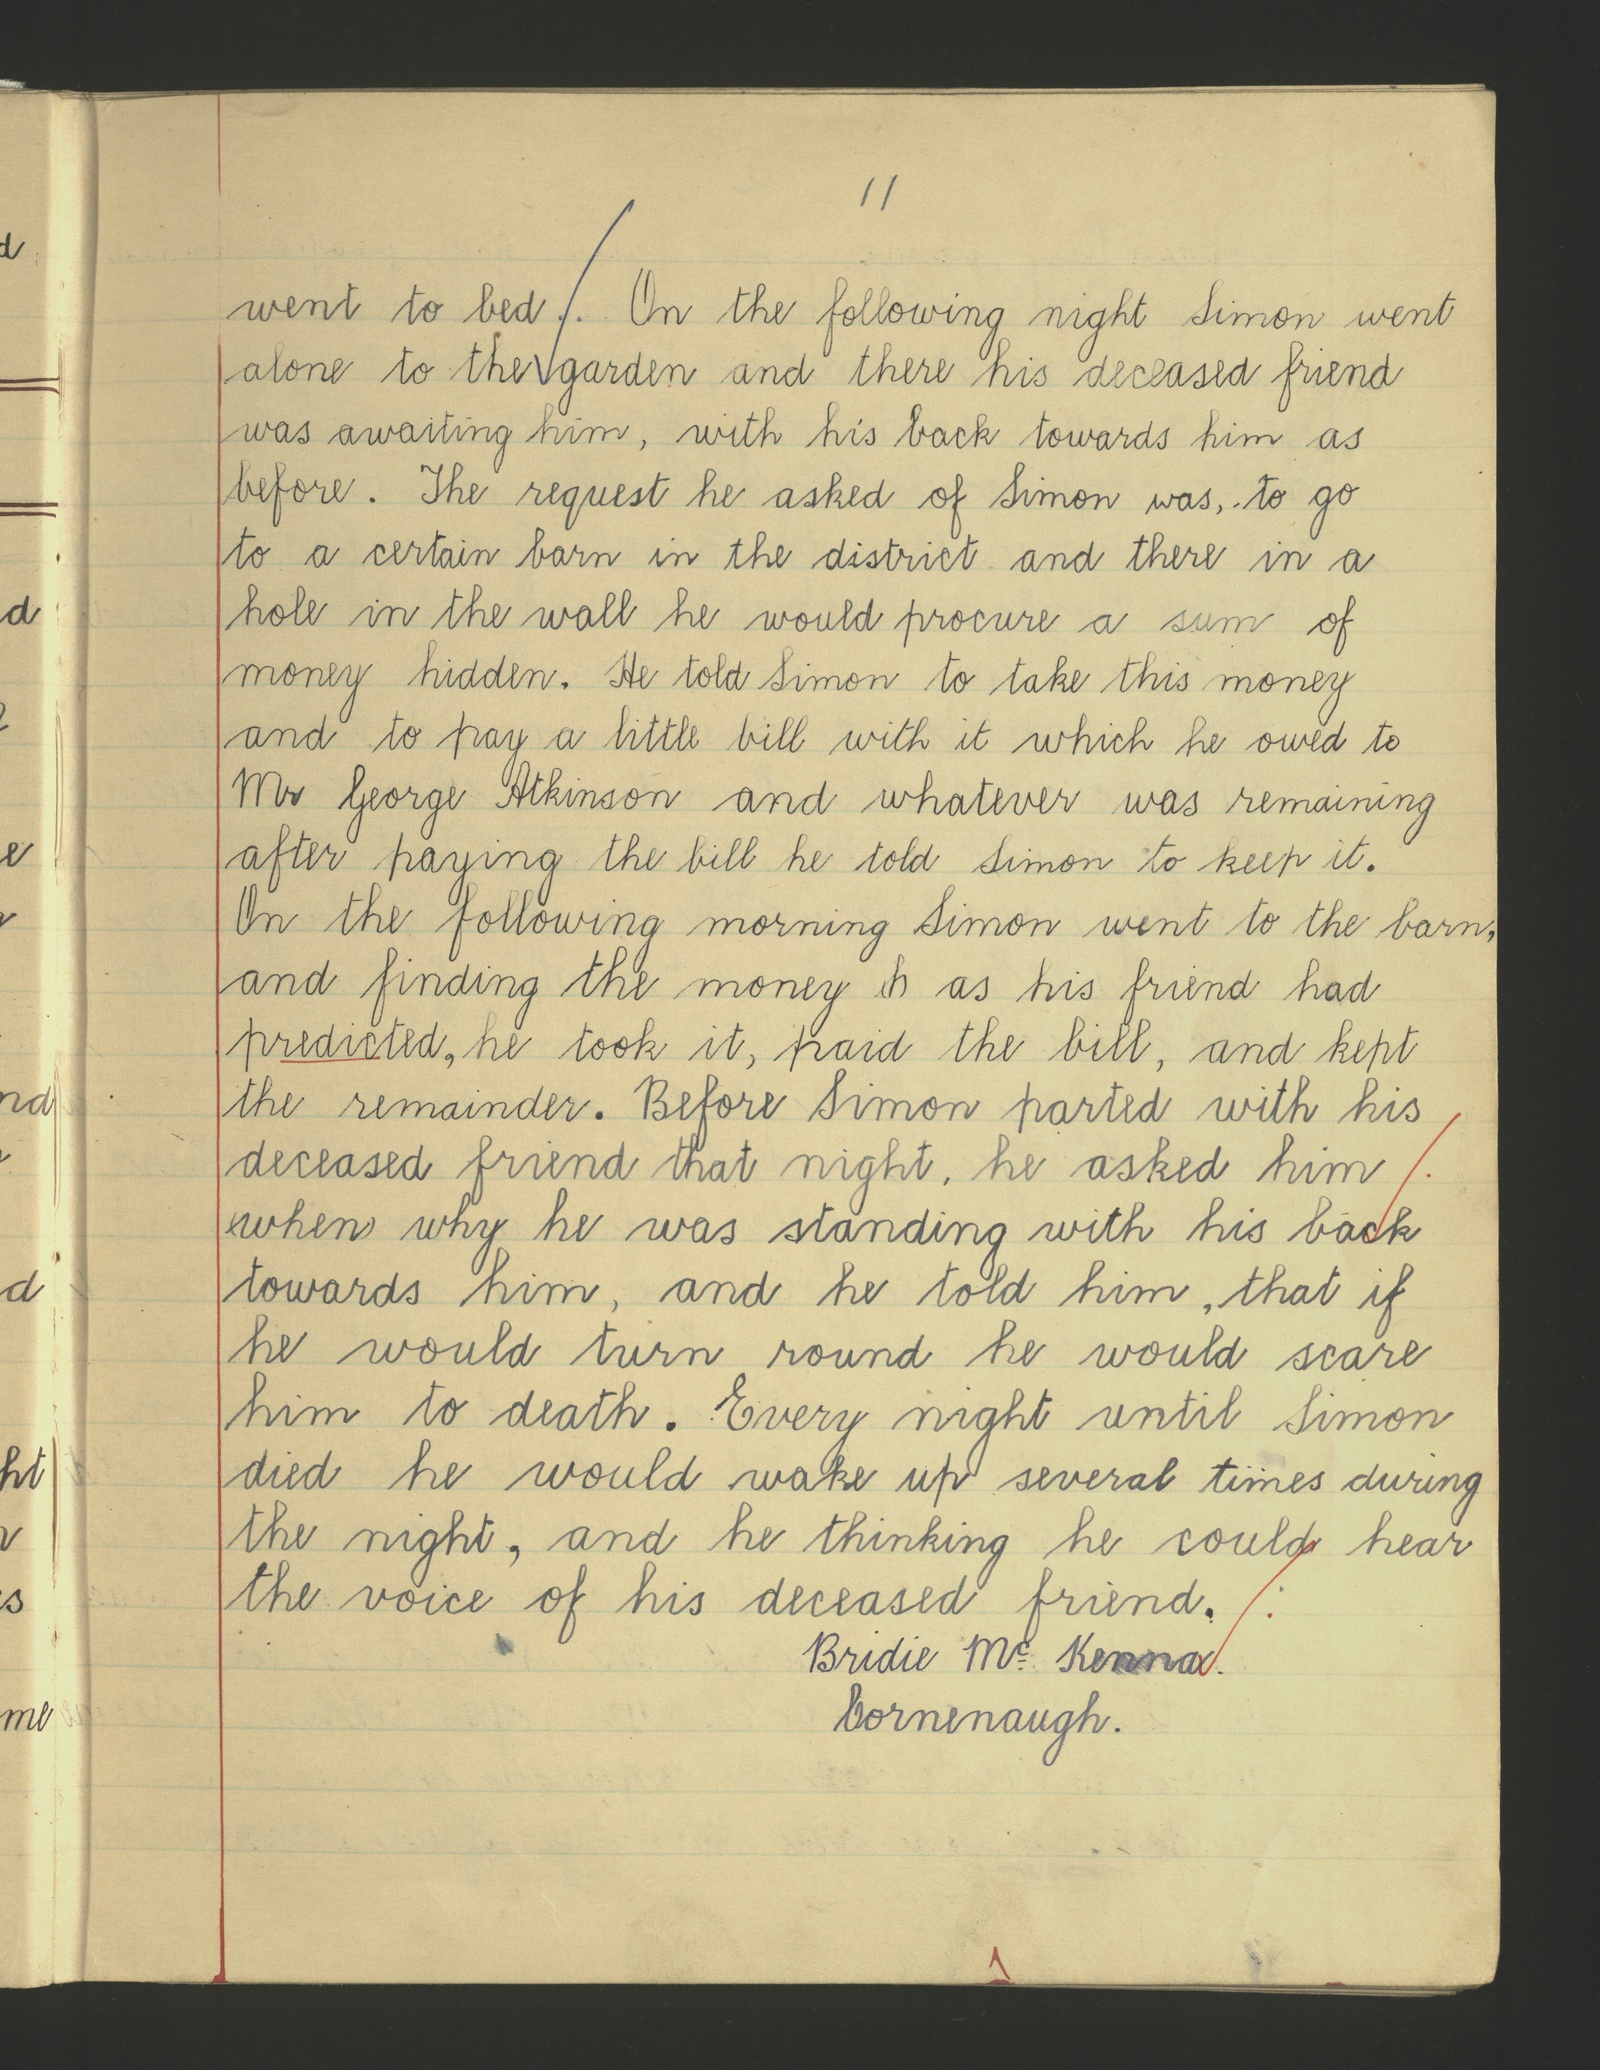 11
went to bed. On the following night Simon went
alone to the garden and there his deceased friend
was awaiting him, with his back towards him as
before. The request he asked of Simon was, to go
to a certain barn in the district and there in a
hole in the wall he would procure a sum of
money hidden. He told Simon to take this money
and to pay a little bill with it which he owed to
Mr George Atkinson and whatever was remaining
after paying the bill he told Simon to keep it.
On the following morning Simon went to the barn,
and finding the money h as his friend had
predicted, he took it, paid the bill, and kept
the remainder. Before Simon parted with his
deceased friend that night, he asked him
when why he was standing with his back
towards him, and he told him, that if
he would turn round he would scare
him to death. Every night until Simon
died he would wake up several times during
the night, and he thinking he could hear
the voice of his deceased friend.
Bridie Mc Kenna.
Cornenaugh.